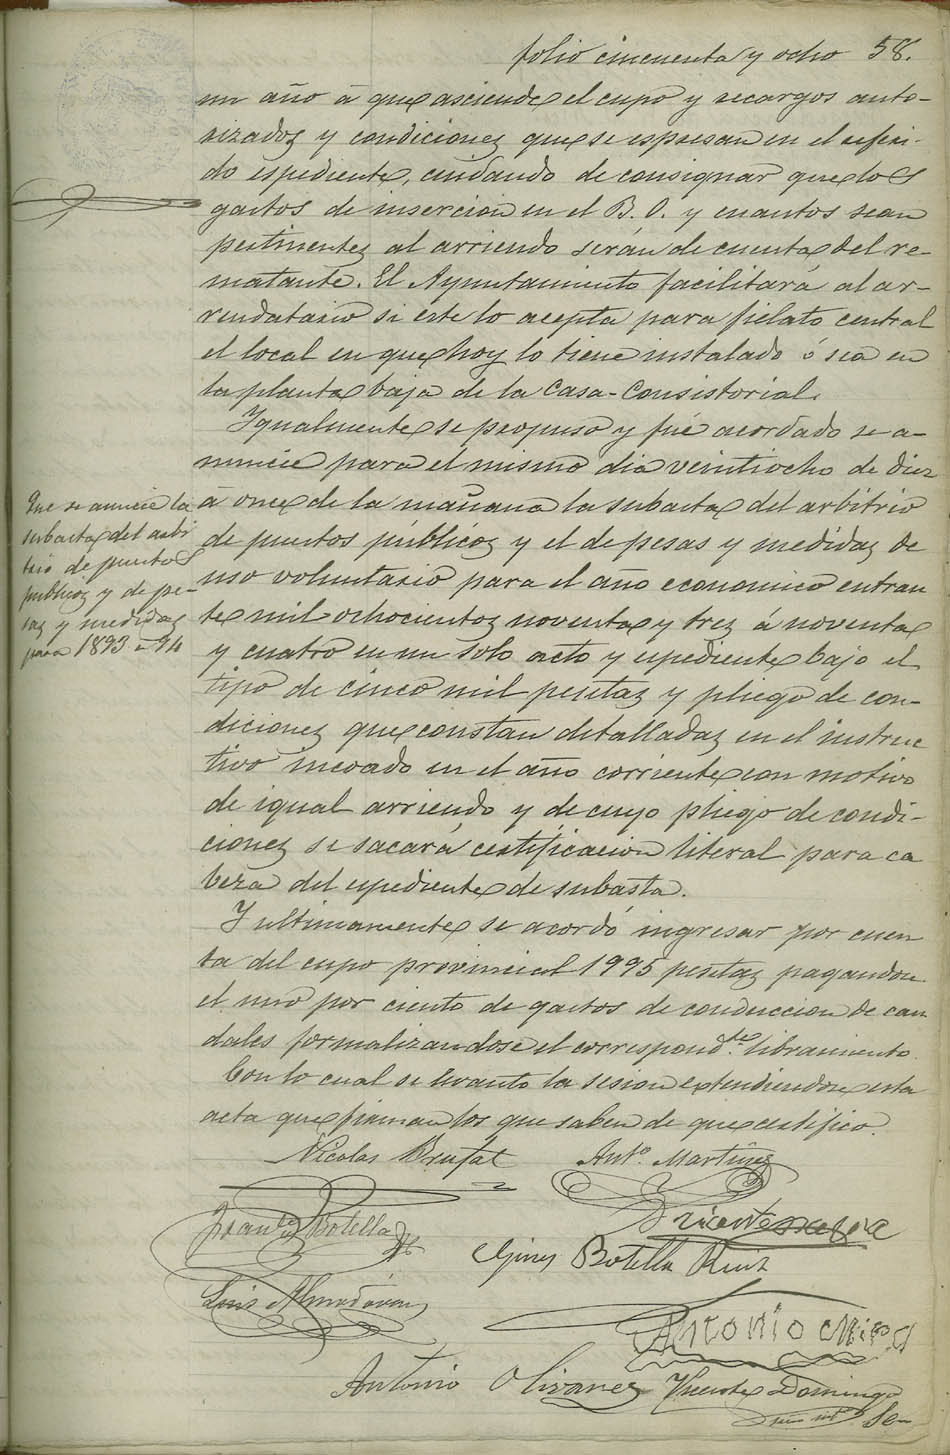 folio cincuenta y ocho 58.
un año á que asciende el cupo y recargos auto-
rizados y condiciones que se espresan en el referi-
do espediente, cuidando de consignar que los
gastos de insercion en el B. O. y cuantos sean
pertinentes al arriendo serán de cuenta del re-
matante. El Ayuntamiento facilitará al ar-
rendatario si este lo acepta para fielato central
el local en que hoy lo tiene instalado ó sea en
la planta baja de la Casa-Consistorial.
Igualmente se propuso y fué acordado se a-
nuncie para el mismo dia veintiocho de diez
á once de la mañana la subasta del arbitrio
de puestos públicos y el de pesas y medidas de
uso voluntario para el año economico entran
te mil ochocientos noventa y tres á noventa
y cuatro en un solo acto y espediente bajo el
tipo de cinco mil pesetas y pliego de con-
diciones que constan detalladas en el instruc
tivo incoado en el año corriente con motivo
de igual arriendo y de cuyo pliego de condi-
ciones se sacará certificacion literal para ca
beza del espediente de subasta.
Y ultimamente se acordó ingresar por cuen
ta del cupo provincial 1995 pesetas pagandose
el uno por ciento de gastos de conduccion de cau
dales formalizandose el correspondte libramiento.
Con lo cual se levanto la sesion extendiendose esta
acta que firman los que saben de que certifico.
Que se anuncie la
subasta del arbi
trio de puestos
publicos y de pe-
sas y medidas
para 1893 á 94
Nicolas Brufal Anto. Martinez
Botella
Vicente
Gines Botella Ruiz
Luis Almodóvar
Antonio Mira
Antonio Olivares Vicente Domingo